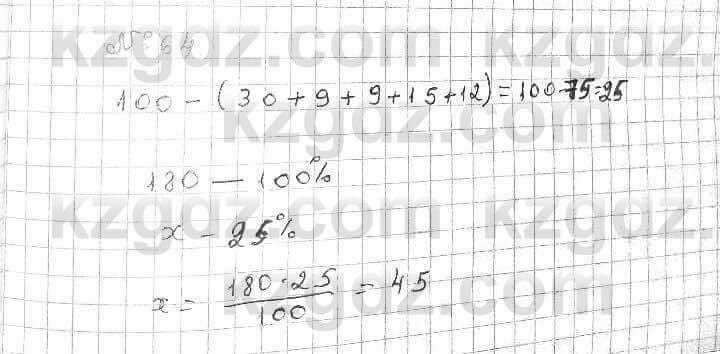 № 64
100 - (30+9+9+15+12) = 100-75=25
180 — 100%
x - 25%
x = 180·25/100 = 45
kzgdz.com
kzgdz.com
kzgdz.com
kzgdz.com